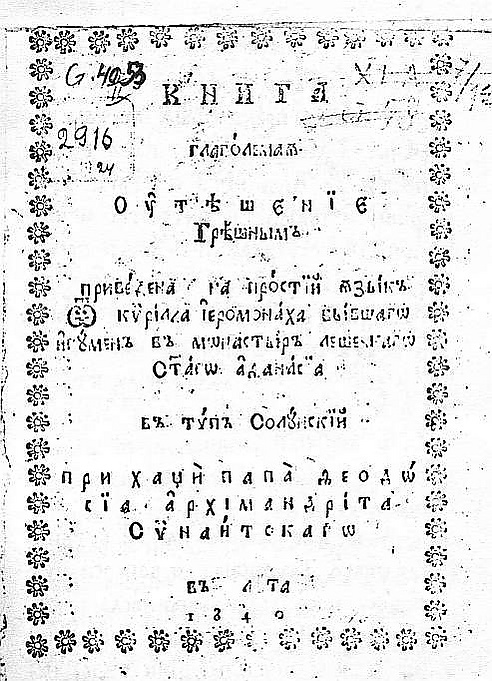 G. 4053
II
КНИГА
2916
24
глаго́лемаѧ
Оу҆тѣшенїе
Грѣшнымъ
приведена на про́стїй ѧзыкъ
Ѿ кѷрїлла їеромона́ха бы́вшагѡ
и҆гꙋменъ въ мѡнастырь лешенгагѡ
ст҃агѡ а҆ѳанасїа
въ тѵпъ Солꙋнскїй
при хаџи̑ папа̀ ѳеодѡ
сїа а҆рхїмандрїта
Сѵнаи́тскагѡ
въ лѣта
1840